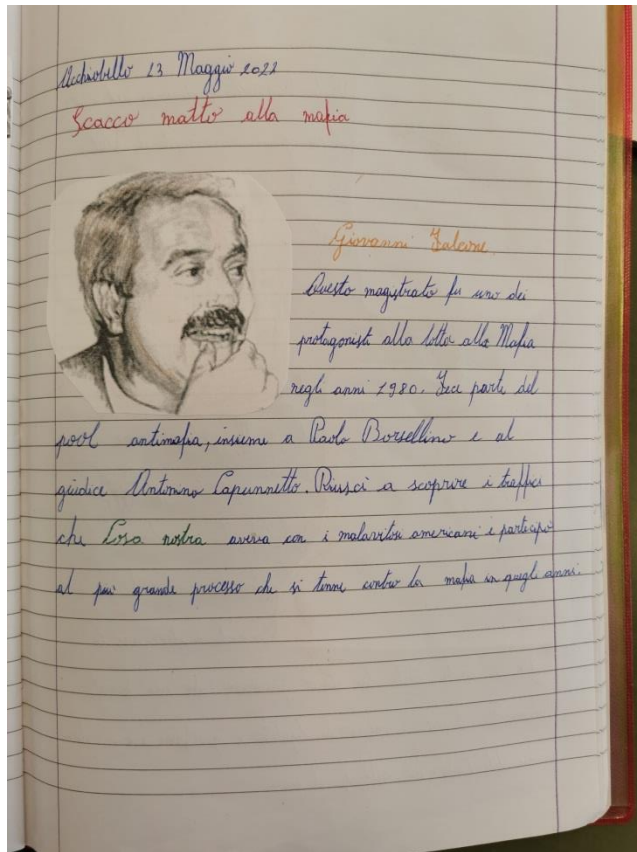 Occhiobello 23 Maggio 2022
Scacco matto alla mafia
Giovanni Falcone.
Questo magistrato fu uno dei
protagonisti alla lotta alla Mafia
negli anni 1980. Fece parte del
pool antimafia, insieme a Paolo Borsellino e al
giudice Antonino Capunnetto. Riuscì a scoprire i traffici
che Cosa nostra aveva con i malavitosi americani e partecipò
al più grande processo che si tenne contro la mafia in quegli anni.